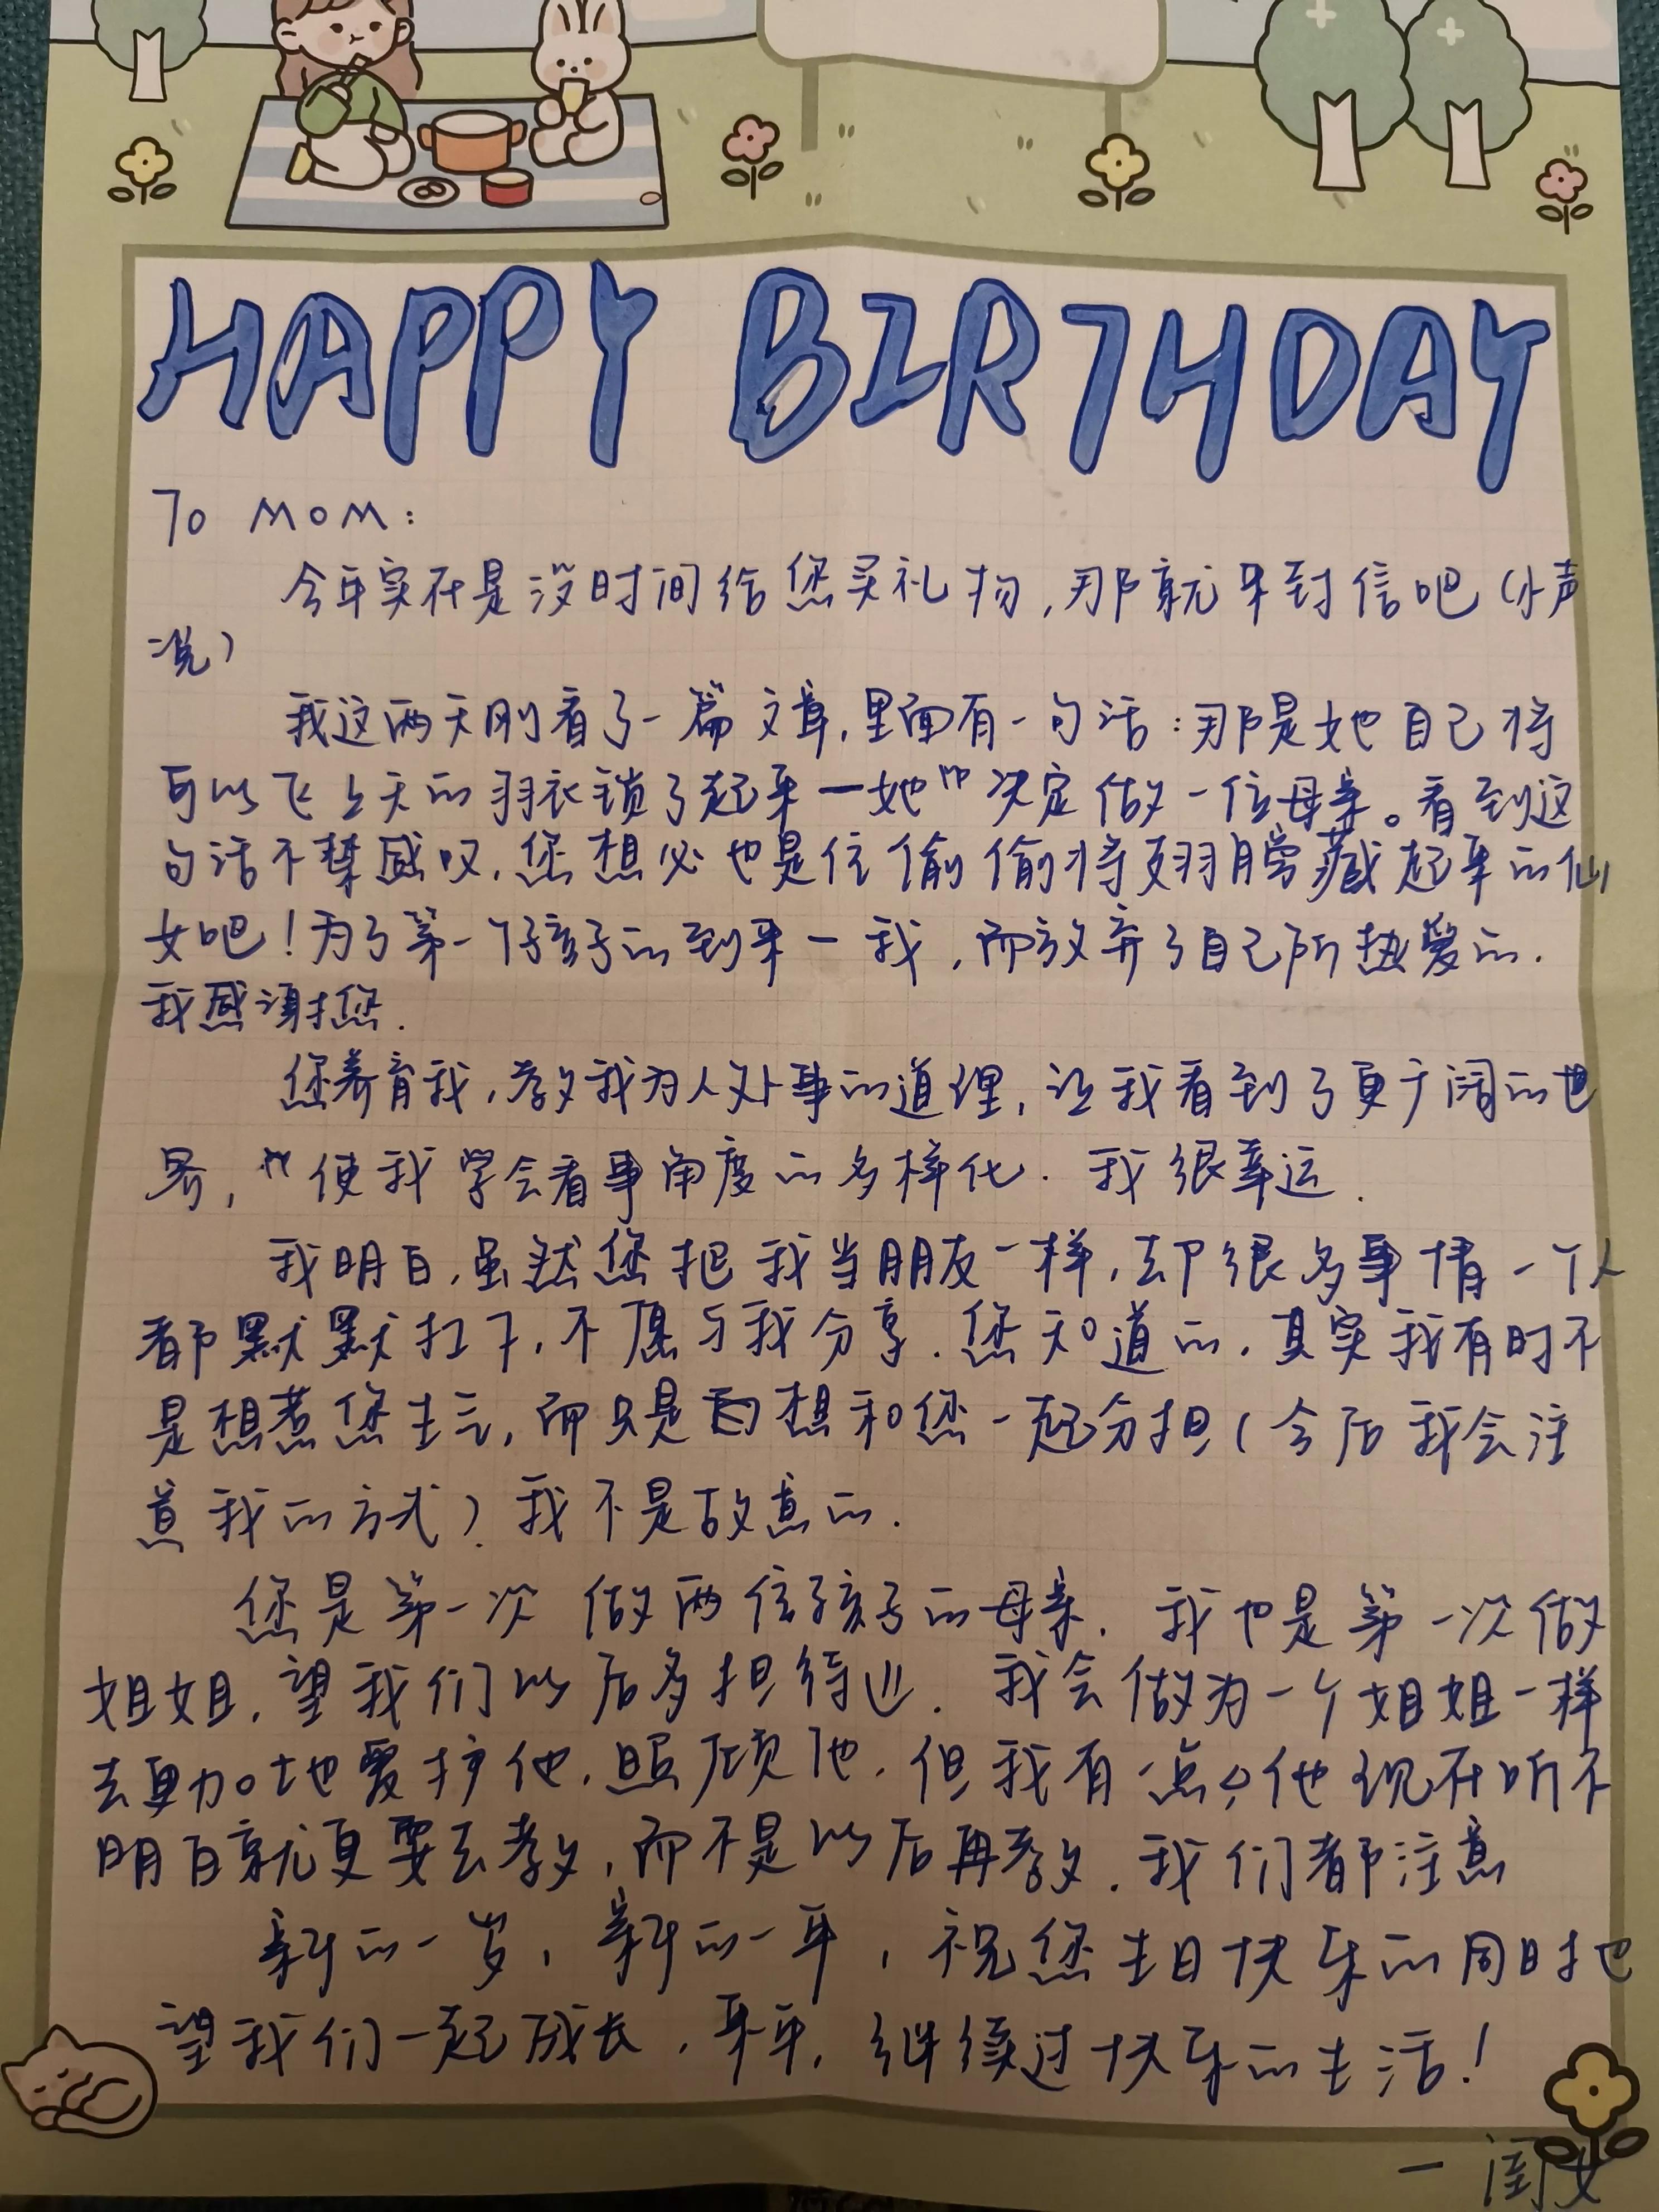 HAPPY BIRTHDAY
To MOM:
今年实在是没时间给您买礼物,那就来到信吧(小声
说)
我这两天刚看了一篇文章,里面有一句话:那是她自己将
可以飞上天的羽衣锁了起来—她决定做一位母亲。看到这
句话不禁感叹,您想必也是位偷偷将翅膀藏起来的仙
女吧!为了第一个孩子的到来—我,而放弃了自己所热爱的.
我感谢您.
您养育我,教我为人处事的道理,让我看到了更广阔的世
界,使我学会看事角度的多样化.我很幸运.
我明白,虽然您把我当朋友一样,却很多事情一个人
都默默扛下,不愿与我分享.您知道的,其实我有时不
是想惹您生气,而只是想和您一起分担(今后我会注
意我的方式)我不是故意的.
您是第一次做两位孩子的母亲,我也是第一次做
姐姐,望我们以后多担待些.我会做为一个姐姐一样
去更加地爱护他,照顾他,但我有一点,他现在听不
明白就更要去教,而不是以后再教.我们都注意
新的一岁,新的一年,祝您生日快乐的同时也
望我们一起成长,来年,继续过快乐的生活!
—闺女